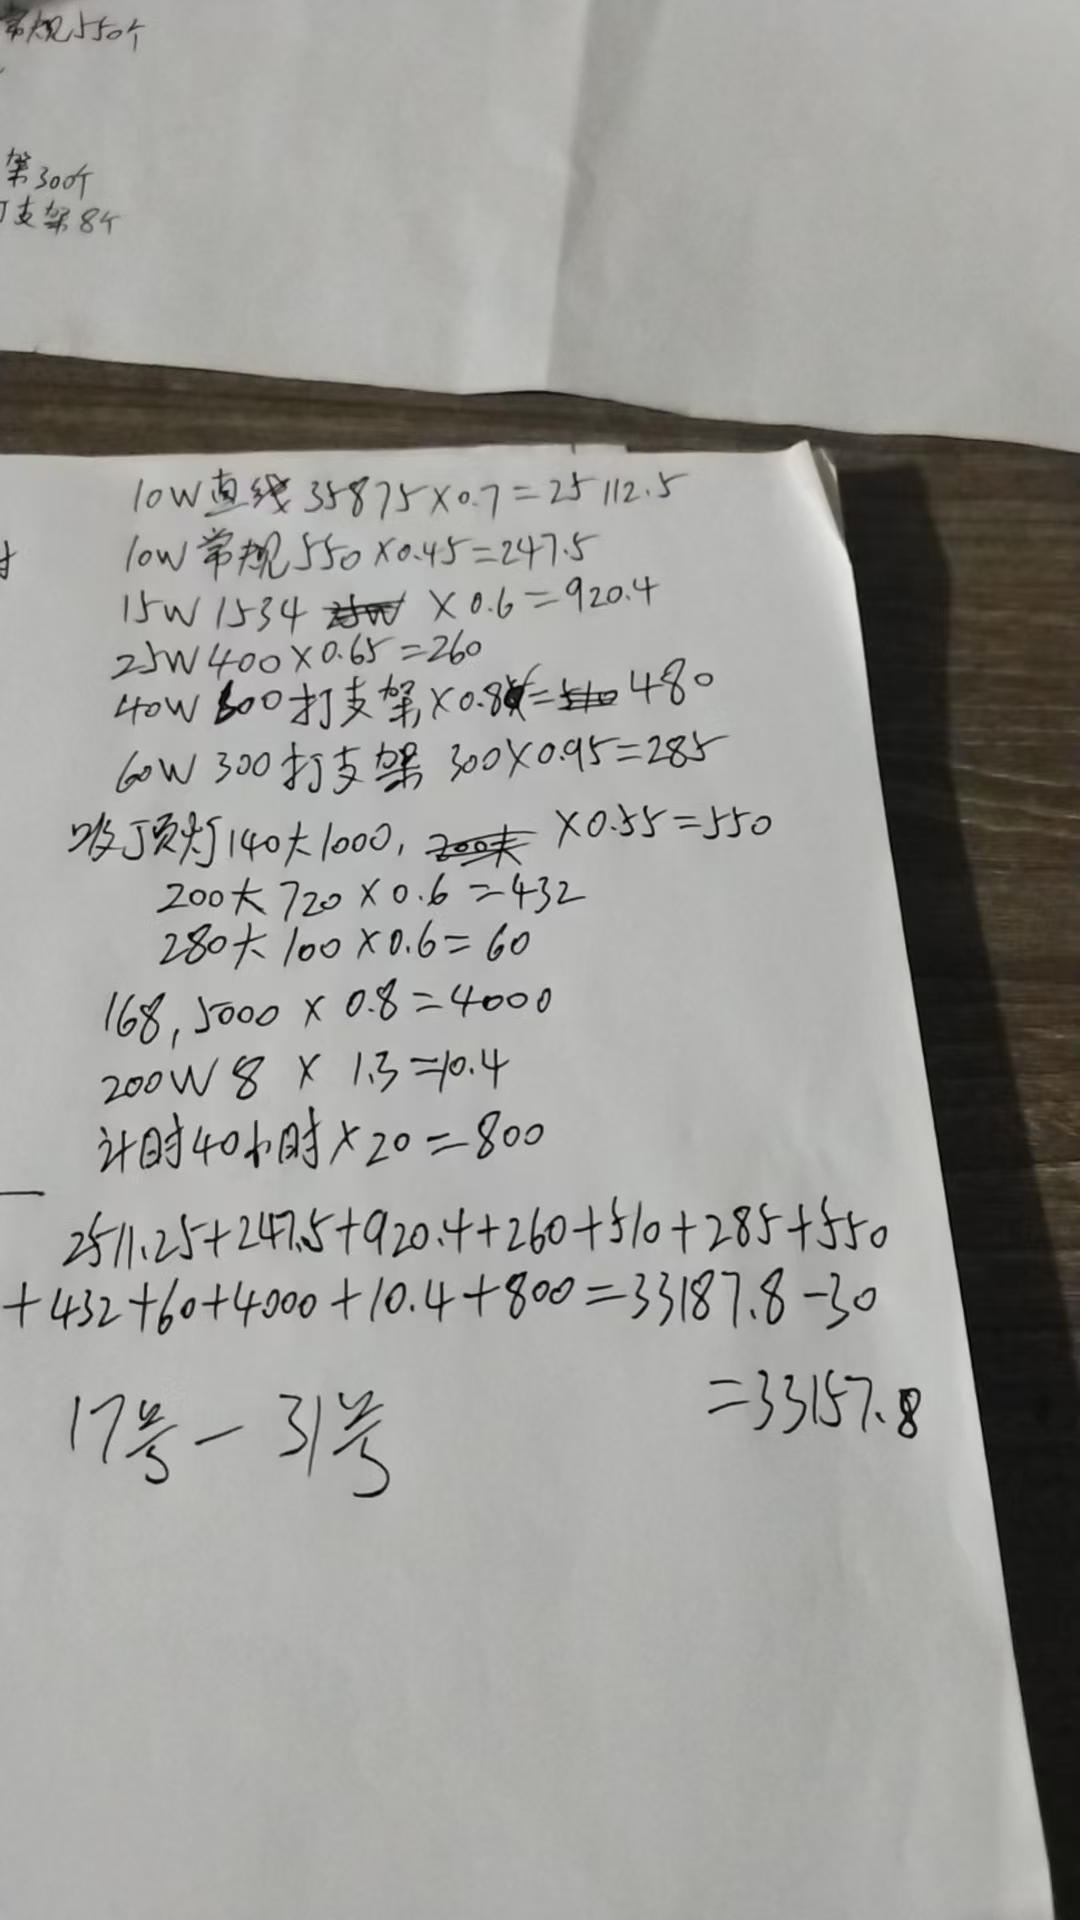 常规550个
架300个
打支架8个
时
10W直线35875×0.7=25112.5
10W常规550×0.45=247.5
15W1534 ×0.6=920.4
25W400×0.65=260
40W600打支架×0.8=480
60W300打支架 300×0.95=285
吸顶灯140大1000, ×0.55=550
200大720×0.6=432
280大100×0.6=60
168,5000×0.8=4000
200W8×1.3=10.4
计时40小时×20=800
2511.25+247.5+920.4+260+510+285+550
+432+60+4000+10.4+800=33187.8-30
=33157.8
17号-31号